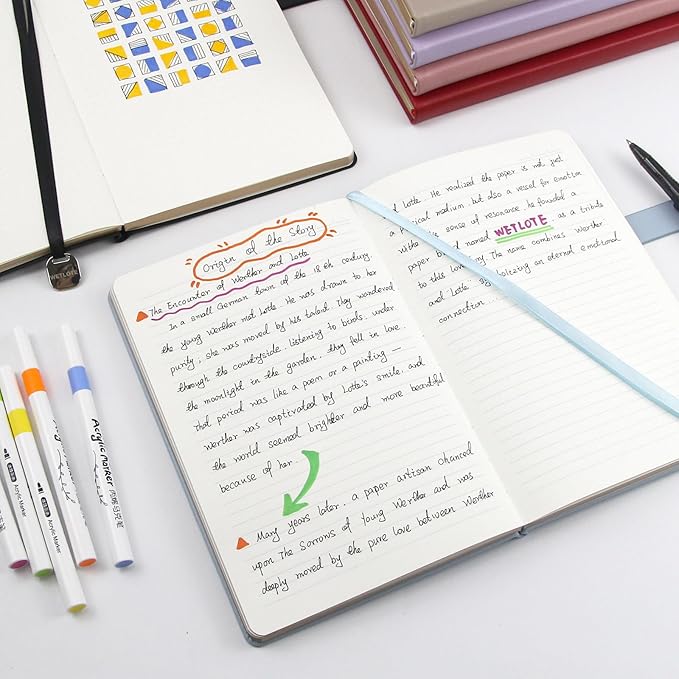 Origin of the Story
The Encounter of Werther and Lotte
In a small German town of the 18 th century,
the young Werther met Lotte. He was drawn to her
purity; she was moved by his talent. They wandered
through the countryside, listening to birds, under
the moonlight in the garden, they fell in love.
That period was like a poem or a painting —
Werther was capttivated by Lotte's smile, and
the world seemed brighter and more beautiful
because of her
Many years later, a paper artisan chanced
upon The Sorrows of Young Werther and was
deeply moved by the pure love between Werther
d Lotte. He realized the paper is not just
ical medium but also a vessel for emotion
this sense of resonance, he founded a
paper brand named WETLOTE as a tribute
to this love. The name combines Werther
and Lotte, symbolizing an eternal emotional
connection....
WETLOTE
Acrylic Marker
Acrylic Marker
Acrylic Marker 丙烯马克笔